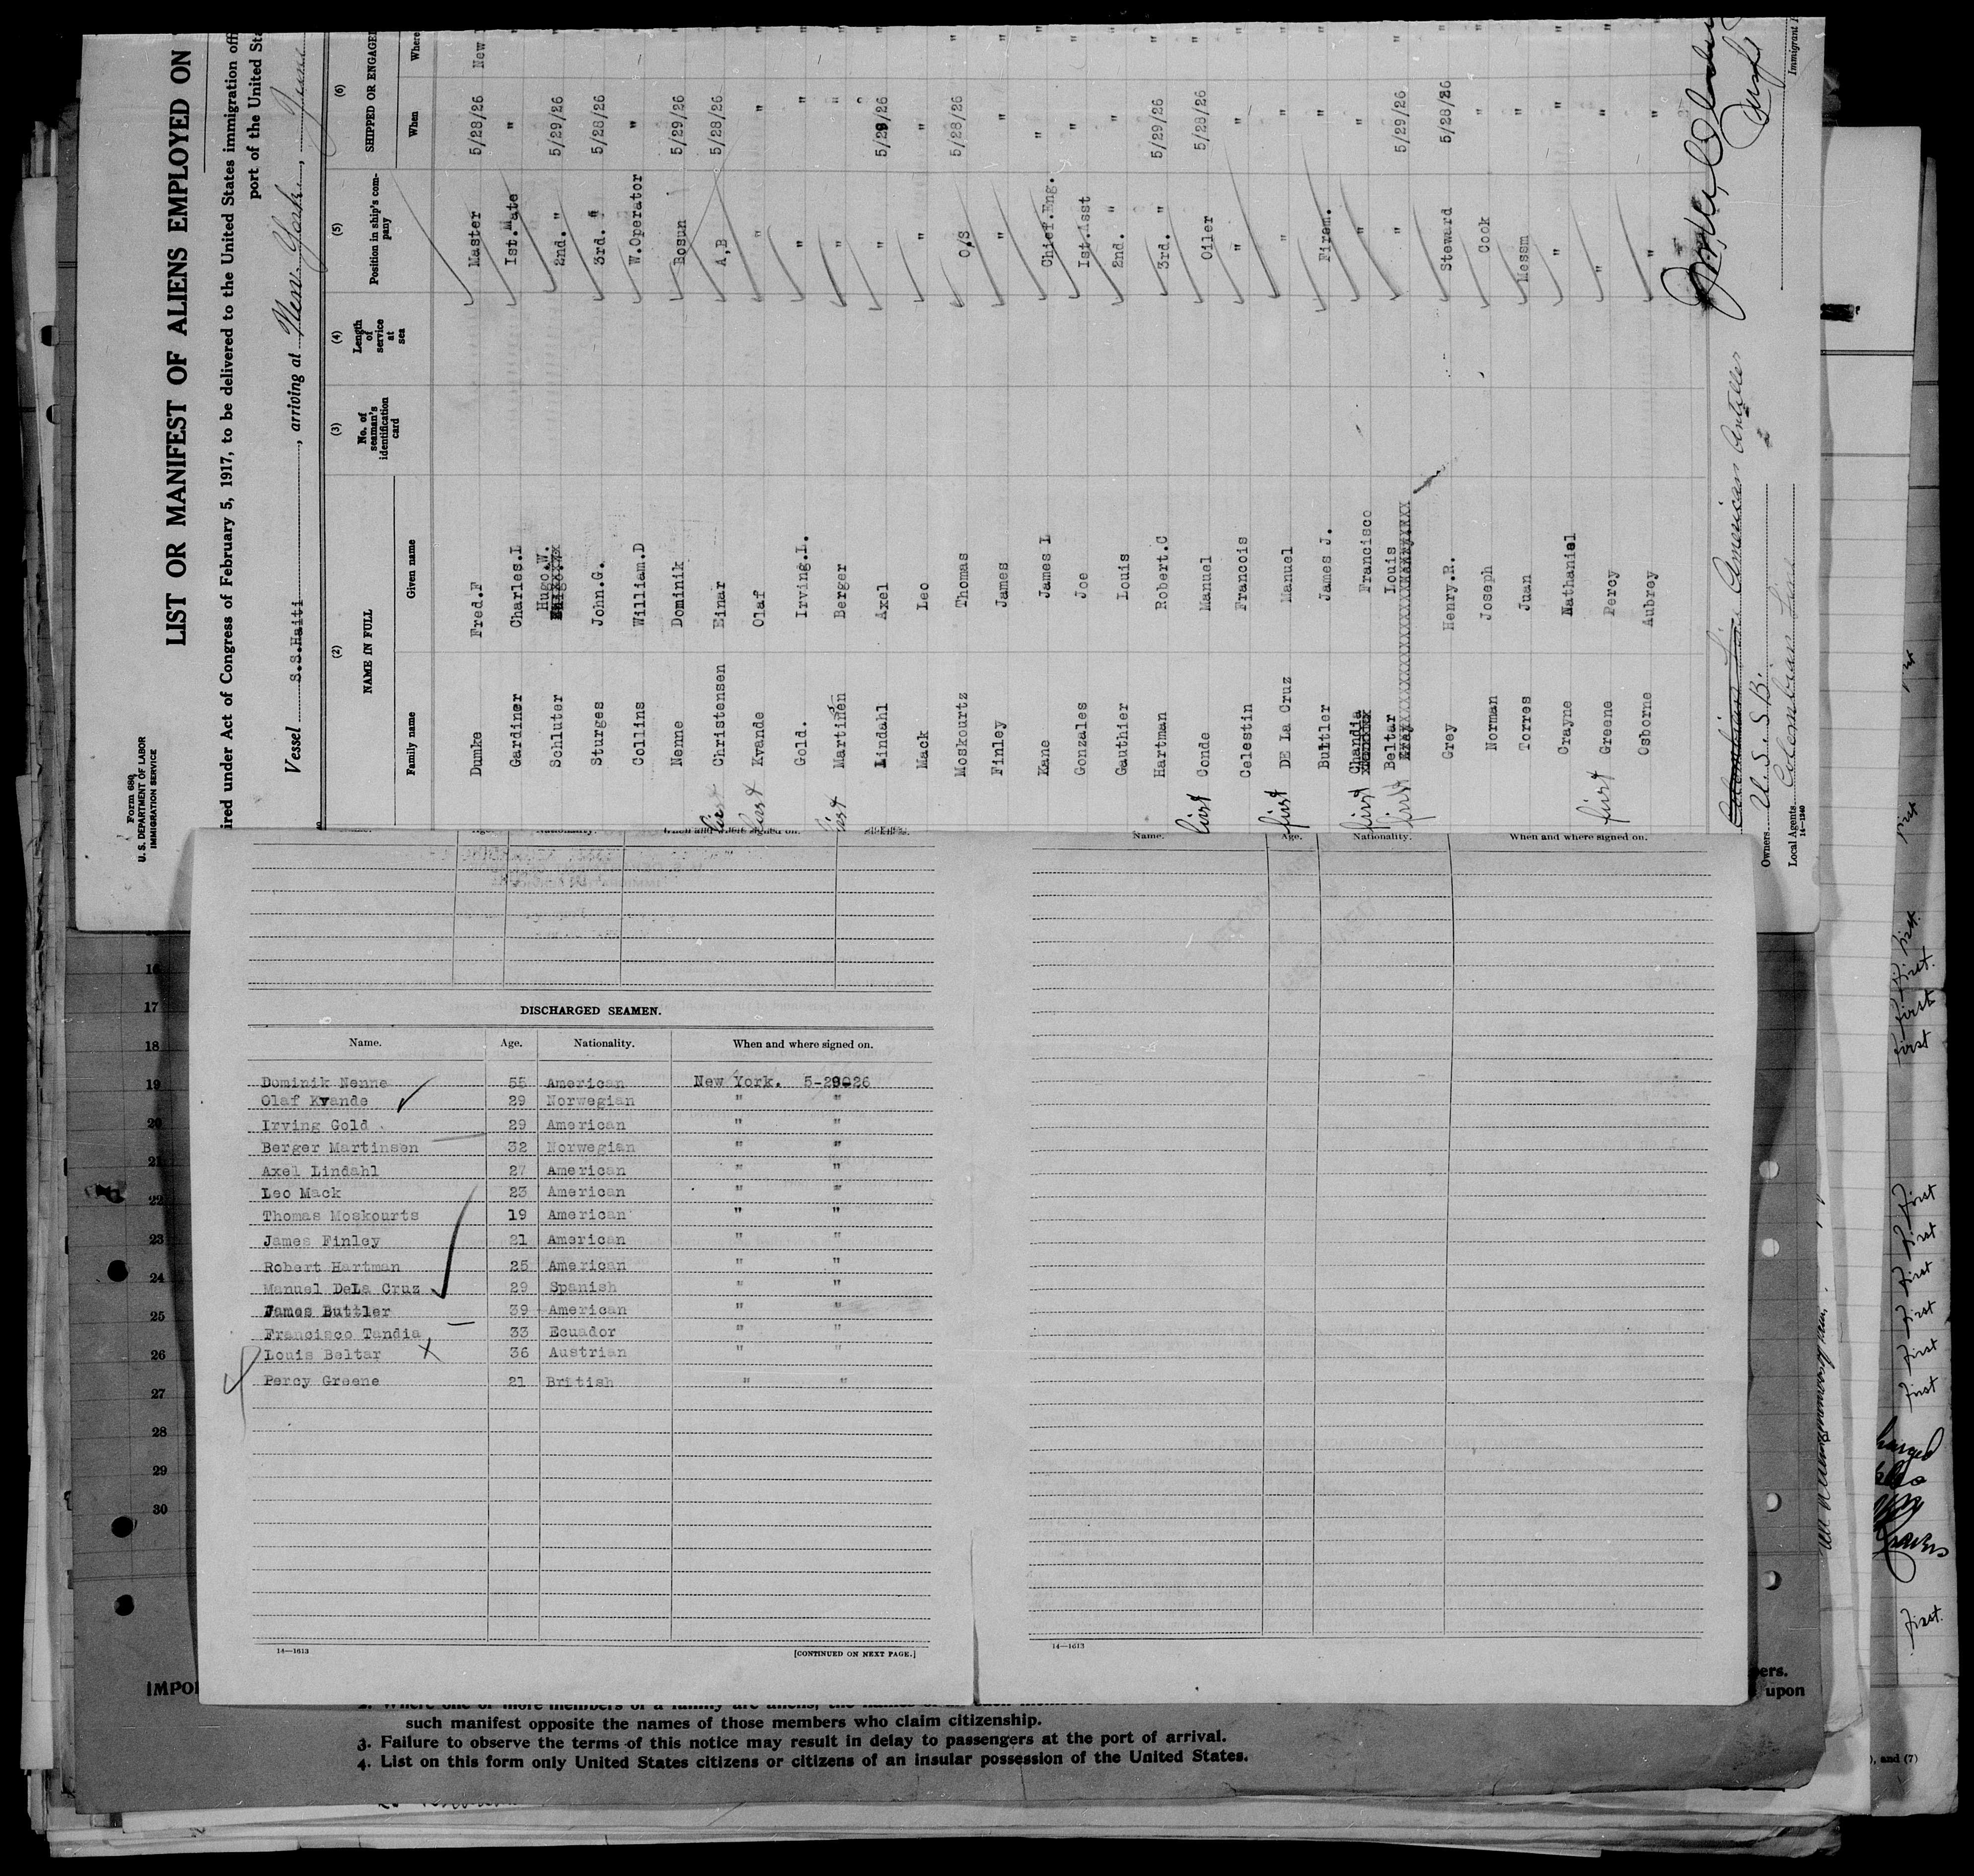 Form 689
U. S. DEPARTMENT OF LABOR
IMMIGRATION SERVICE
LIST OR MANIFEST OF ALIENS EMPLOYED ON
ired under Act of Congress of February 5, 1917, to be delivered to the United States immigration offi
port of the United Sta
Vessel S.S.Haiti, arriving at New York, June
(2) (3) (4) (5) (6)
NAME IN FULL No. of seaman's identification card Length of service at sea Position in ship's company SHIPPED OR ENGAGED
Family name Given name When Where
Dumke Fred.F Master 5/28/26 New
Gardiner Charles.L Ist.Mate " "
Schluter Hugo.W. 2nd. " 5/29/26
Sturges John.G. 3rd. " 5/28/26 "
Collins William.D W.Operator "
Nenne Dominik Bosun 5/29/26 "
first Christensen Einar A,B 5/28/26 "
first Kvande Olaf " " "
Gold. Irving.L. " " "
first Martinen Berger " " "
Lindahl Axel " 5/29/26 "
Mack Leo " "
Moskourtz Thomas O/S 5/28/26 "
Finley James " " "
Kane James L Chief.Eng. " "
Gonzales Joe Ist.Asst " "
Gauthier Louis 2nd. " " "
Hartman Robert.C 3rd. " 5/29/26 "
first Conde Manuel Oiler 5/28/26 "
Celestin Francois " " "
first DE La Cruz Manuel " " "
Buttler James J. Firem. " "
first Chandia Francisco " "
first Beltar Louis " 5/29/26 "
Grey Henry.R. Steward 5/28/26 "
Norman Joseph Cook " "
Torres Juan Messm " "
Crayne Nathaniel " " "
first Greene Percy " " "
Osborne Aubrey " "
American Antilles
Owners U. S. S. B.
Local Agents Colombian Line
14—1240
Immigrant
Name. Age. Nationality. When and where signed on.
DISCHARGED SEAMEN.
Name. Age. Nationality. When and where signed on.
Dominik Nenne 55 American New York. 5-29-26
Olaf Kvande 29 Norwegian " "
Irving Gold 29 American " "
Berger Martinsen 32 Norwegian " "
Axel Lindahl 27 American " "
Leo Mack 23 American " "
Thomas Moskourts 19 American " "
James Finley 21 American " "
Robert Hartman 25 American " "
Manuel DeLa Cruz 29 Spanish " "
James Buttler 39 American " "
Francisco Tandia 33 Ecuador " "
Louis Beltar 36 Austrian " "
Percy Greene 21 British " "
14—1613
[CONTINUED ON NEXT PAGE.]
14—1613
16
17
18
19
20
21
22
23
24
25
26
27
28
29
30
IMPO
such manifest opposite the names of those members who claim citizenship.
3. Failure to observe the terms of this notice may result in delay to passengers at the port of arrival.
4. List on this form only United States citizens or citizens of an insular possession of the United States.
ers.
upon
first
first
first
first
first
first
first
first
first
first.
, and (7)